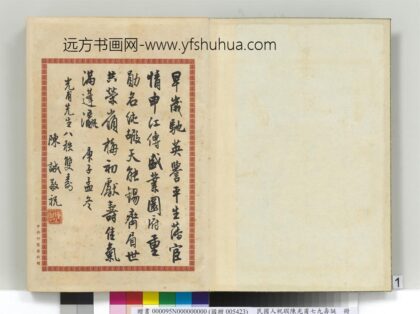 远方书画网-www.yfshuhua.com
早歲馳英譽平生藹宦
情申江傳盛業園府重
勛名純嘏天能錫齊眉世
共榮嶺梅初獻壽佳氣
滿蓬瀛 庚子孟冬
光甫先生八秩雙壽
陳誠敬祝
1
檔書 000095N000000000 (國贈 005423) 民國人祝賀陳光甫七九壽誕